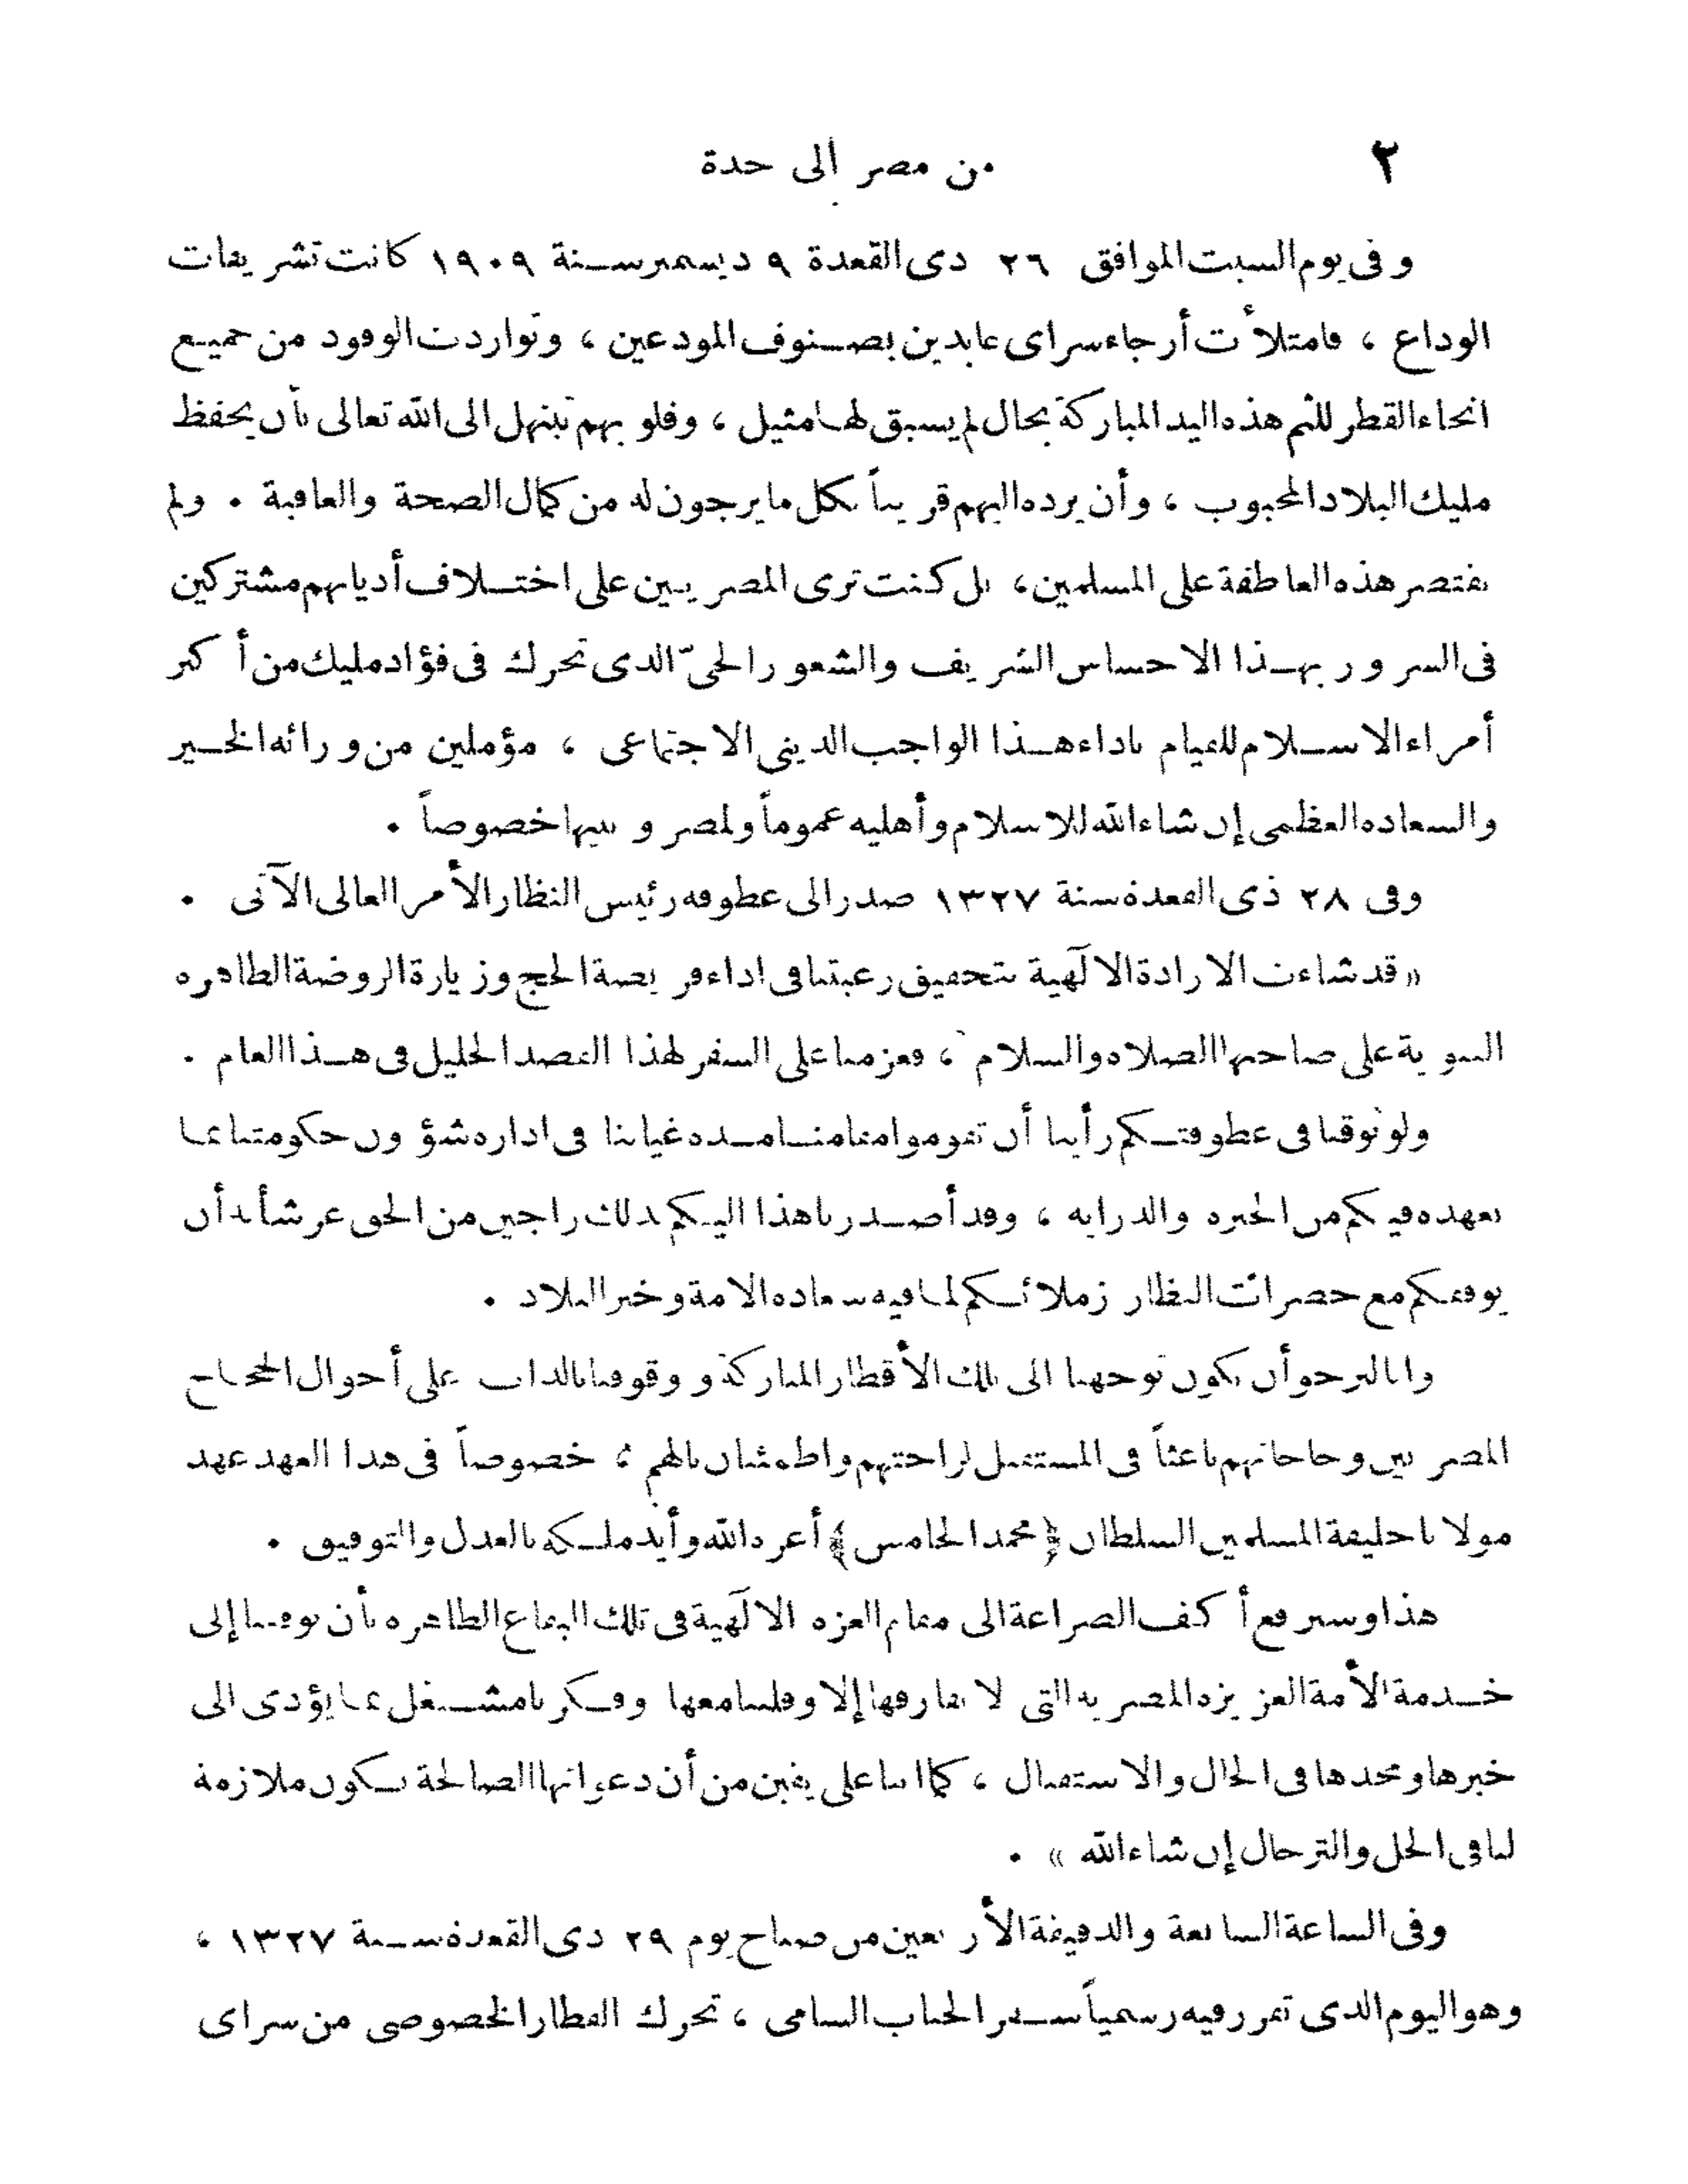 ٢ من مصر إلى جدة
وفى يوم السبت الموافق ٢٦ ذى القعدة ٩ ديسمبر سنة ١٩٠٩ كانت تشريفات
الوداع ، فامتلأت أرجاء سراى عابدين بصنوف المودعين ، وتواردت الوفود من جميع
انحاء القطر للثم هذه اليد المباركة بحال لم يسبق لها مثيل ، وقلوبهم تبتهل الى الله تعالى بأن يحفظ
مليك البلاد المحبوب ، وأن يرده اليهم قريباً بكل ما يرجون له من كمال الصحة والعافية . ولم
تقتصر هذه العاطفة على المسلمين ، بل كنت ترى المصريين على اختلاف أديانهم مشتركين
فى السرور بهذا الاحساس الشريف والشعور الحىّ الذى تحرك فى فؤاد مليك من أكبر
أمراء الاسلام للقيام باداء هذا الواجب الدينى الاجتماعى ، مؤملين من ورائه الخير
والسعادة العظمى إن شاء الله للاسلام وأهليه عموماً ولمصر وبنيها خصوصاً .
وفى ٢٨ ذى القعدة سنة ١٣٢٧ صدر الى عطوفة رئيس النظار الأمر العالى الآتى .
« قد شاءت الارادة الالٓهية بتحقيق رغبتنا فى اداء فريضة الحج وزيارة الروضة الطاهرة
النبوية على صاحبها الصلاة والسلام ، فعزمنا على السفر لهذا القصد الجليل فى هذا العام .
ولوثوقنا فى عطوفتكم رأينا أن تقوموا مقامنا مدة غيابنا فى ادارة شؤون حكومتنا بما
نعهده فيكم من الخبرة والدراية ، وقد أصدرنا هذا اليكم بذلك راجين من الحق عز شأنه أن
يوفقكم مع حضرات النظار زملائكم لما فيه سعادة الامة وخير البلاد .
وانا لنرجو أن يكون توجهنا الى تلك الأقطار المباركة ووقوفنا بالذات على أحوال الحجاج
المصريين وحاجاتهم باعثاً فى المستقبل لراحتهم واطمئنان بالهم ؛ خصوصاً فى هذا العهد عهد
مولانا خليفة المسلمين السلطان ﴿محمد الخامس﴾ أعزه الله وأيد ملكه بالعدل والتوفيق .
هذا وسنرفع أكف الضراعة الى مقام العزة الالٓهية فى تلك البقاع الطاهرة بأن يوفقنا إلى
خدمة الأمة العزيزة المصرية التى لا نفارقها إلا وقلبنا معها وفكرنا مشتغل بما يؤدى الى
خيرها ومجدها فى الحال والاستقبال ، كما اننا على يقين من أن دعواتها الصالحة ستكون ملازمة
لنا فى الحل والترحال إن شاء الله » .
وفى الساعة السابعة والدقيقة الأربعين من صباح يوم ٢٩ ذى القعدة سنة ١٣٢٧ ،
وهو اليوم الذى تقرر فيه رسمياً سفر الجناب السامى ، تحرك القطار الخصوصى من سراى